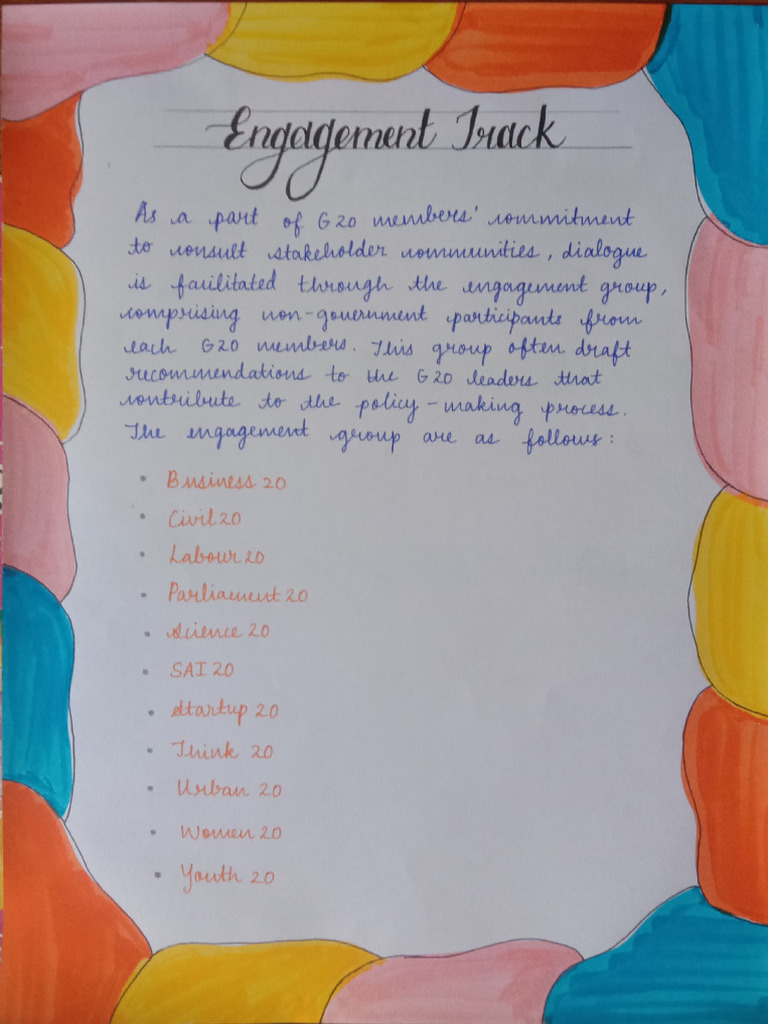 Engagement Track
As a part of G20 members' commitment
to consult stakeholder communities, dialogue
is facilitated through the engagement group,
comprising non-government participants from
each G20 members. This group often draft
recommendations to the G20 leaders that
contribute to the policy-making process.
The engagement group are as follows:
• Business 20
• Civil 20
• Labour 20
• Parliament 20
• Science 20
• SAI 20
• Startup 20
• Think 20
• Urban 20
• Women 20
• Youth 20